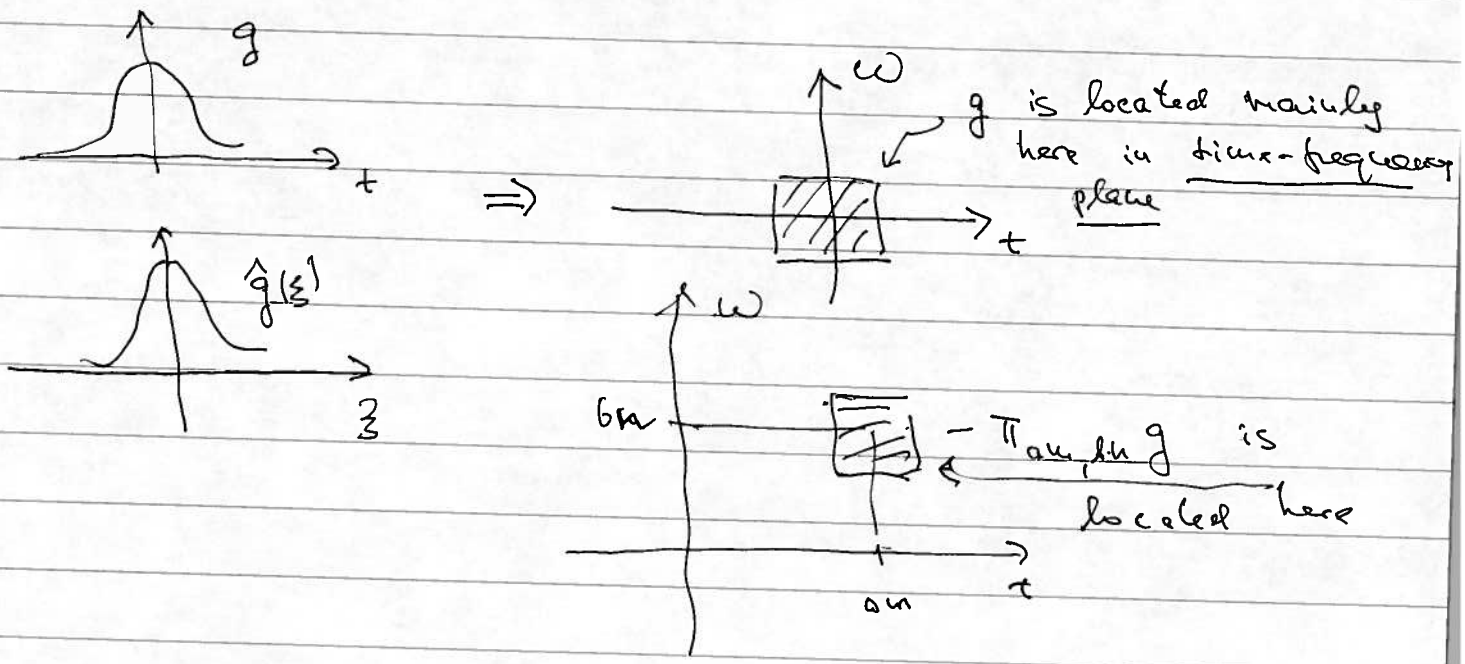 g
t
ĝ(ξ)
ξ
⇒
ω
g is located mainly
here in time-frequency
plane
t
ω
bn
π_{am,bn} g is
located here
am
t